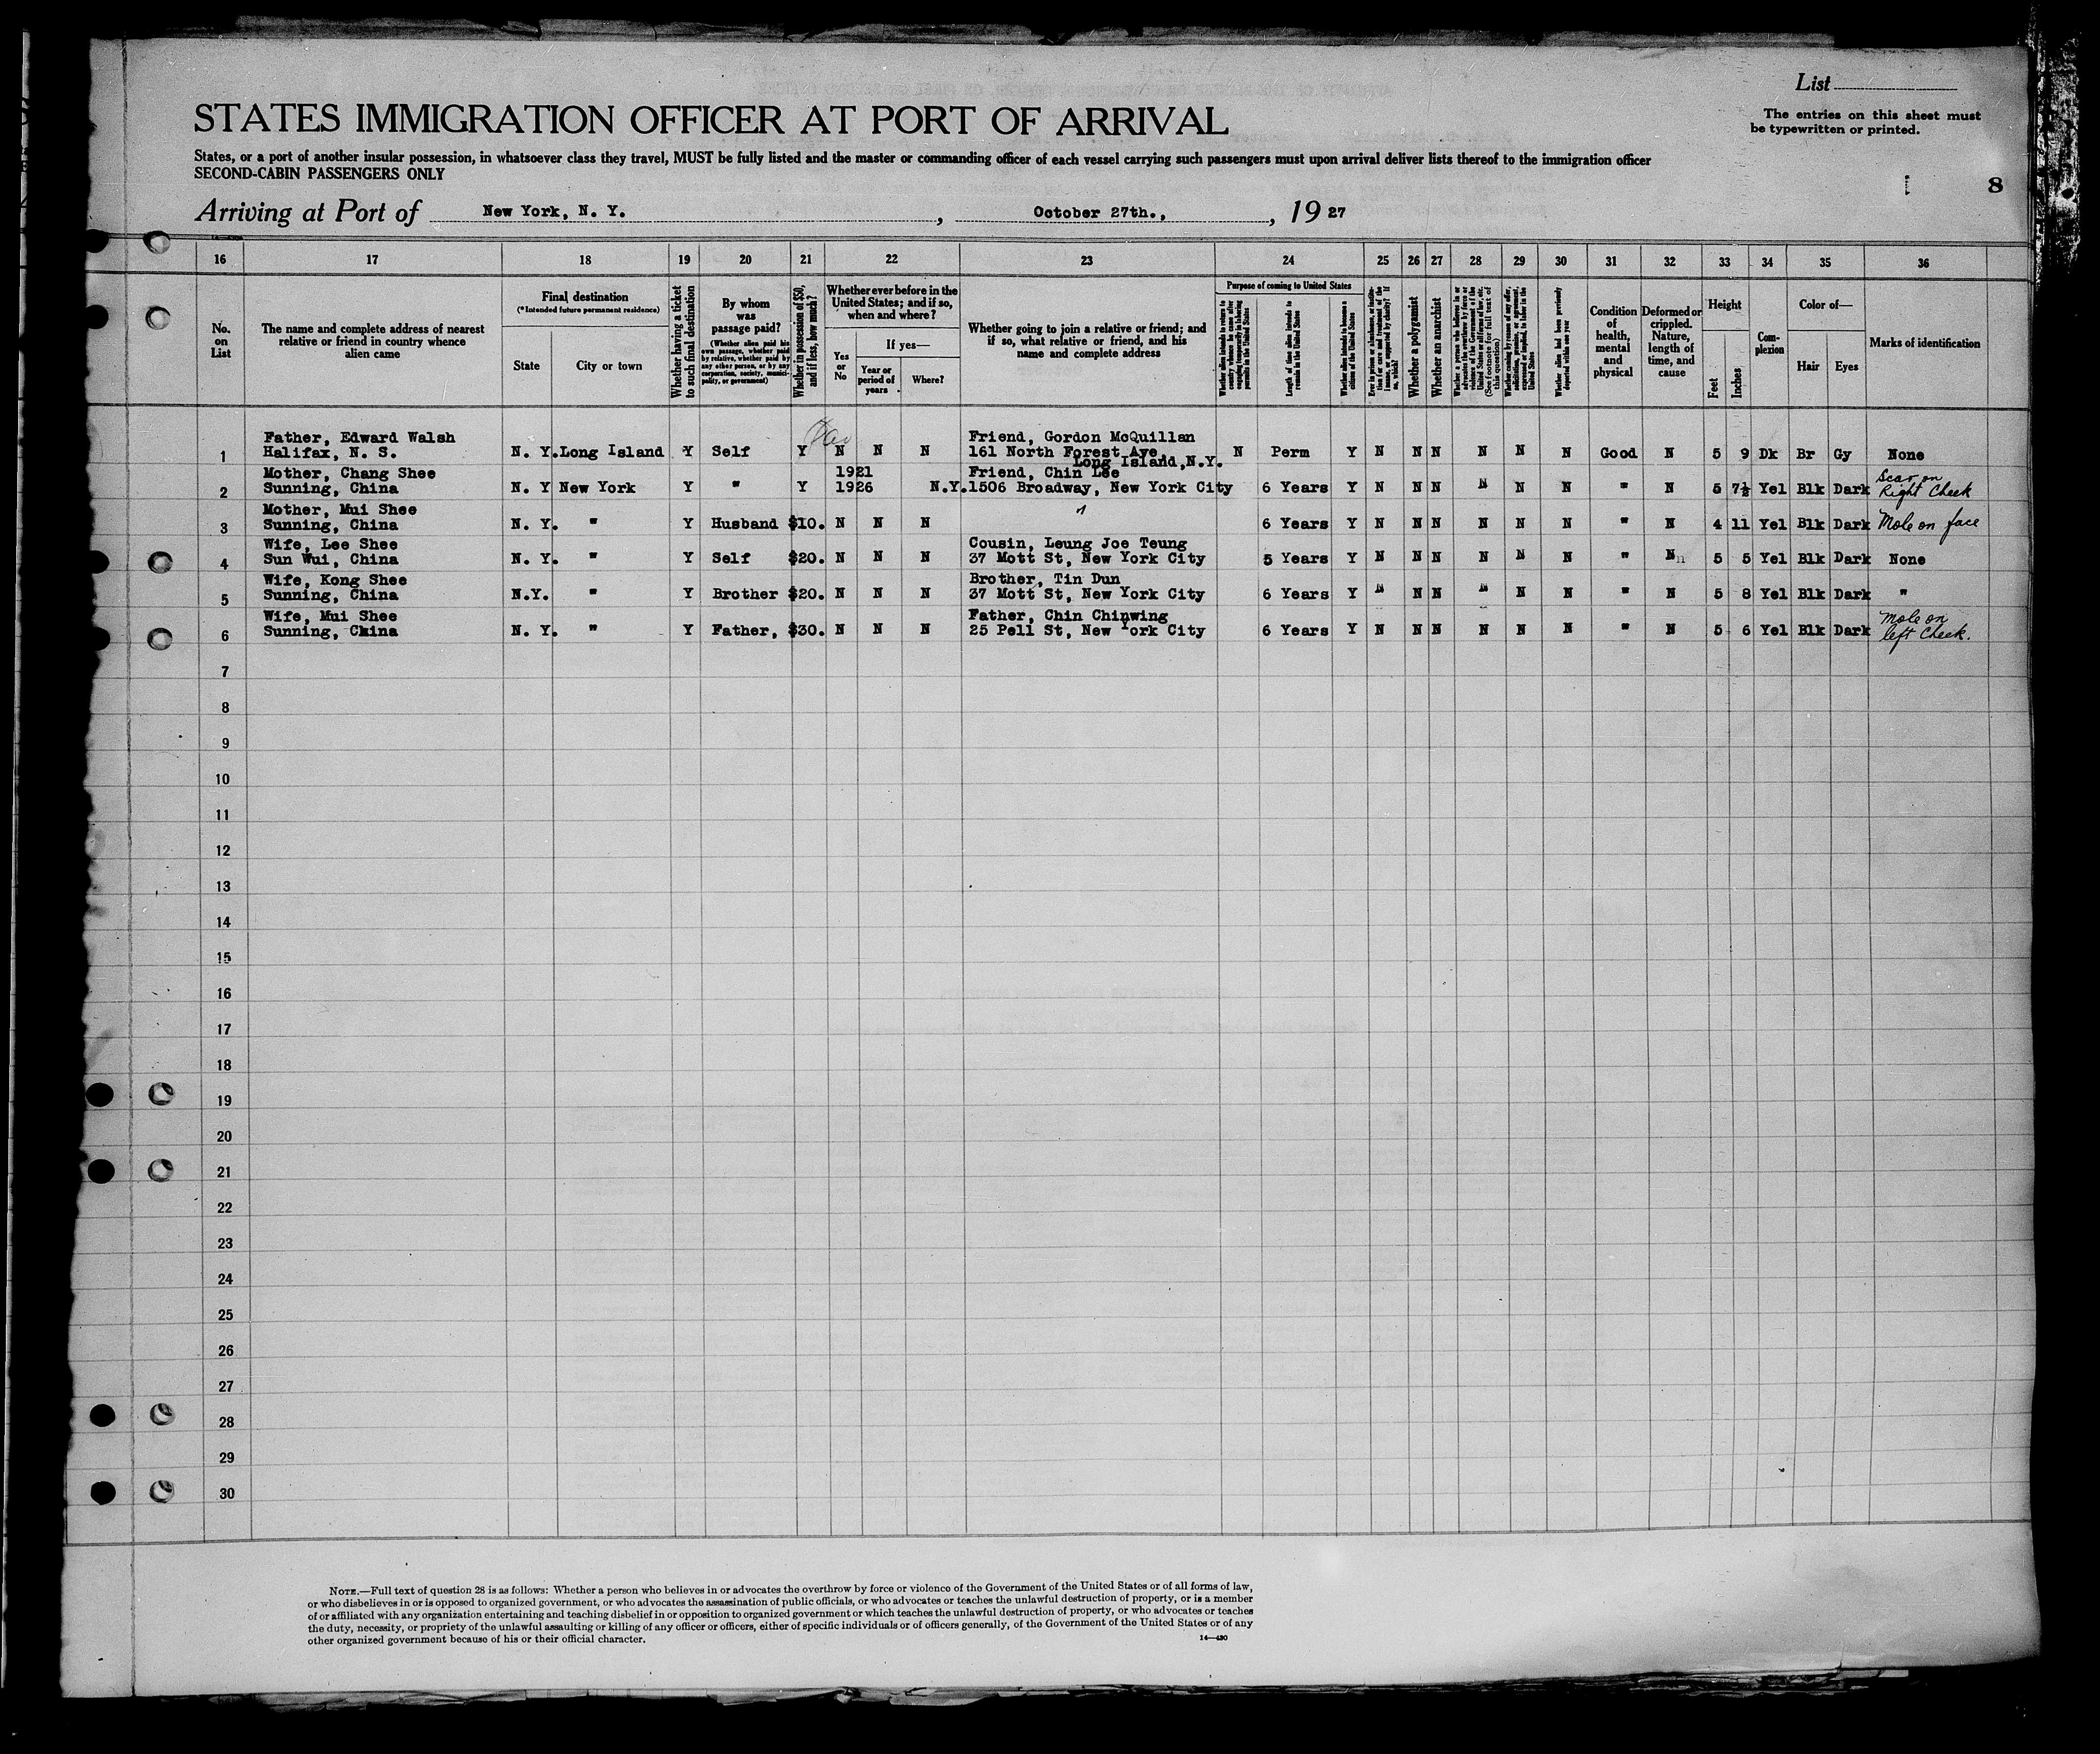 List
The entries on this sheet must
be typewritten or printed.
STATES IMMIGRATION OFFICER AT PORT OF ARRIVAL
States, or a port of another insular possession, in whatsoever class they travel, MUST be fully listed and the master or commanding officer of each vessel carrying such passengers must upon arrival deliver lists thereof to the immigration officer
SECOND-CABIN PASSENGERS ONLY
8
Arriving at Port of New York, N. Y. , October 27th., , 19 27
16 17 18 19 20 21 22 23 24 25 26 27 28 29 30 31 32 33 34 35 36
No.
on
List
The name and complete address of nearest
relative or friend in country whence
alien came
Final destination
(*Intended future permanent residence)
State
City or town
Whether having a ticket
to such final destination
By whom
was
passage paid?
(Whether alien paid his
own passage, whether paid
by relative, whether paid by
any other person, or by any
corporation, society, munici-
pality, or government)
Whether in possession of $50,
and if less, how much?
Whether ever before in the
United States; and if so,
when and where?
Yes
or
No
If yes—
Year or
period of
years
Where?
Whether going to join a relative or friend; and
if so, what relative or friend, and his
name and complete address
Purpose of coming to United States
Whether alien intends to return to
country whence he came after
engaging temporarily in laboring
pursuits in the United States
Length of time alien intends to
remain in the United States
Whether alien intends to become a
citizen of the United States
Whether a polygamist
Whether an anarchist
Whether alien had been previously
deported within one year
Condition
of
health,
mental
and
physical
Deformed or
crippled.
Nature,
length of
time, and
cause
Height
Feet
Inches
Com-
plexion
Color of—
Hair
Eyes
Marks of identification
Father, Edward Walsh Friend, Gordon McQuillan
1 Halifax, N. S. N. Y. Long Island Y Self Y N N N 161 North Forest Ave, N Perm Y N N N N N N Good N 5 9 Dk Br Gy None
Long Island, N.Y.
Mother, Chang Shee 1921 Friend, Chin Lee Scar on
2 Sunning, China N. Y New York Y " Y 1926 N.Y. 1506 Broadway, New York City 6 Years Y N N N N N N " N 5 7½ Yel Blk Dark Right Cheek
Mother, Mui Shee "
3 Sunning, China N. Y. " Y Husband $10. N N N 6 Years Y N N N N N N " N 4 11 Yel Blk Dark Mole on face
Wife, Lee Shee Cousin, Leung Joe Teung
4 Sun Wui, China N. Y. " Y Self $20. N N N 37 Mott St, New York City 5 Years Y N N N N N N " N 5 5 Yel Blk Dark None
Wife, Kong Shee Brother, Tin Dun
5 Sunning, China N.Y. " Y Brother $20. N N N 37 Mott St, New York City 6 Years Y " N N " N N " N 5 8 Yel Blk Dark "
Wife, Mui Shee Father, Chin Chinwing Mole on
6 Sunning, China N. Y. " Y Father, $30. N N N 25 Pell St, New York City 6 Years Y N N N N N N " N 5 6 Yel Blk Dark left Cheek.
7
8
9
10
11
12
13
14
15
16
17
18
19
20
21
22
23
24
25
26
27
28
29
30
NOTE.—Full text of question 28 is as follows: Whether a person who believes in or advocates the overthrow by force or violence of the Government of the United States or of all forms of law,
or who disbelieves in or is opposed to organized government, or who advocates the assassination of public officials, or who advocates or teaches the unlawful destruction of property, or is a member
of or affiliated with any organization entertaining and teaching disbelief in or opposition to organized government or which teaches the unlawful destruction of property, or who advocates or teaches
the duty, necessity, or propriety of the unlawful assaulting or killing of any officer or officers, either of specific individuals or of officers generally, of the Government of the United States or of any
other organized government because of his or their official character.
14—430